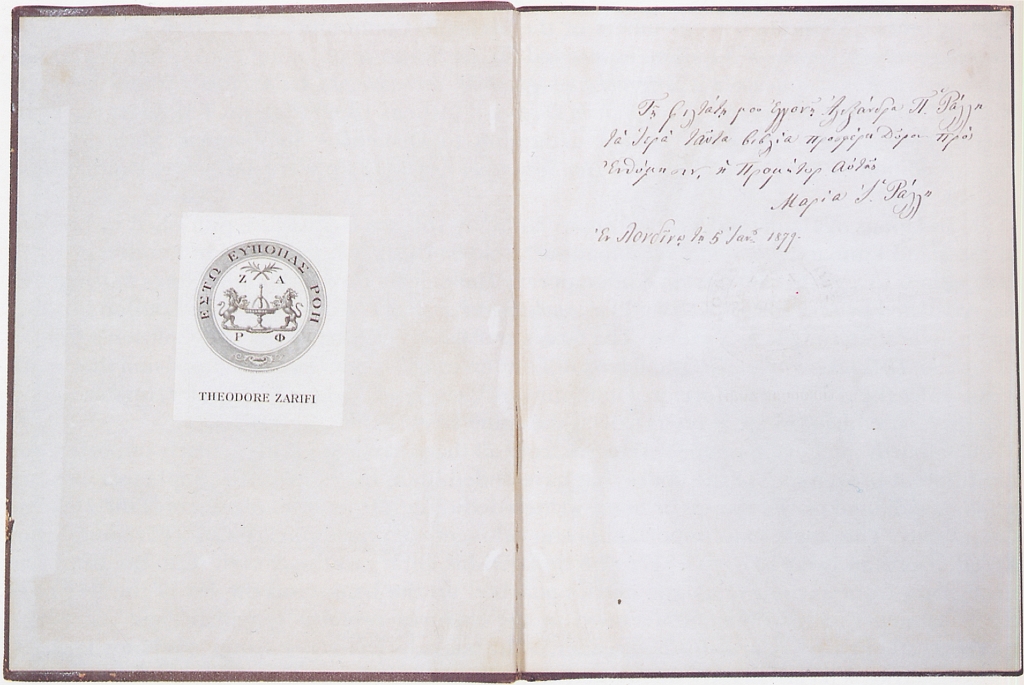 ΕΣΤΩ ΕΥΠΟΠΑΣ ΡΟΗ
Ζ Α
Ρ Φ
THEODORE ZARIFI
Τῇ φιλτάτῃ μου Ἐγγονῇ Ἀλεξάνδρᾳ Π. Ῥάλλη
τὰ Ἱερὰ ταῦτα βιβλία προσφέρει Δῶρον πρὸς
Ἐνθύμησιν, ἡ Προμήτωρ Αὐτῆς
Μαρία Ῥάλλη
Ἐν Λονδίνῳ τῇ 5 Ἰαν. 1879.